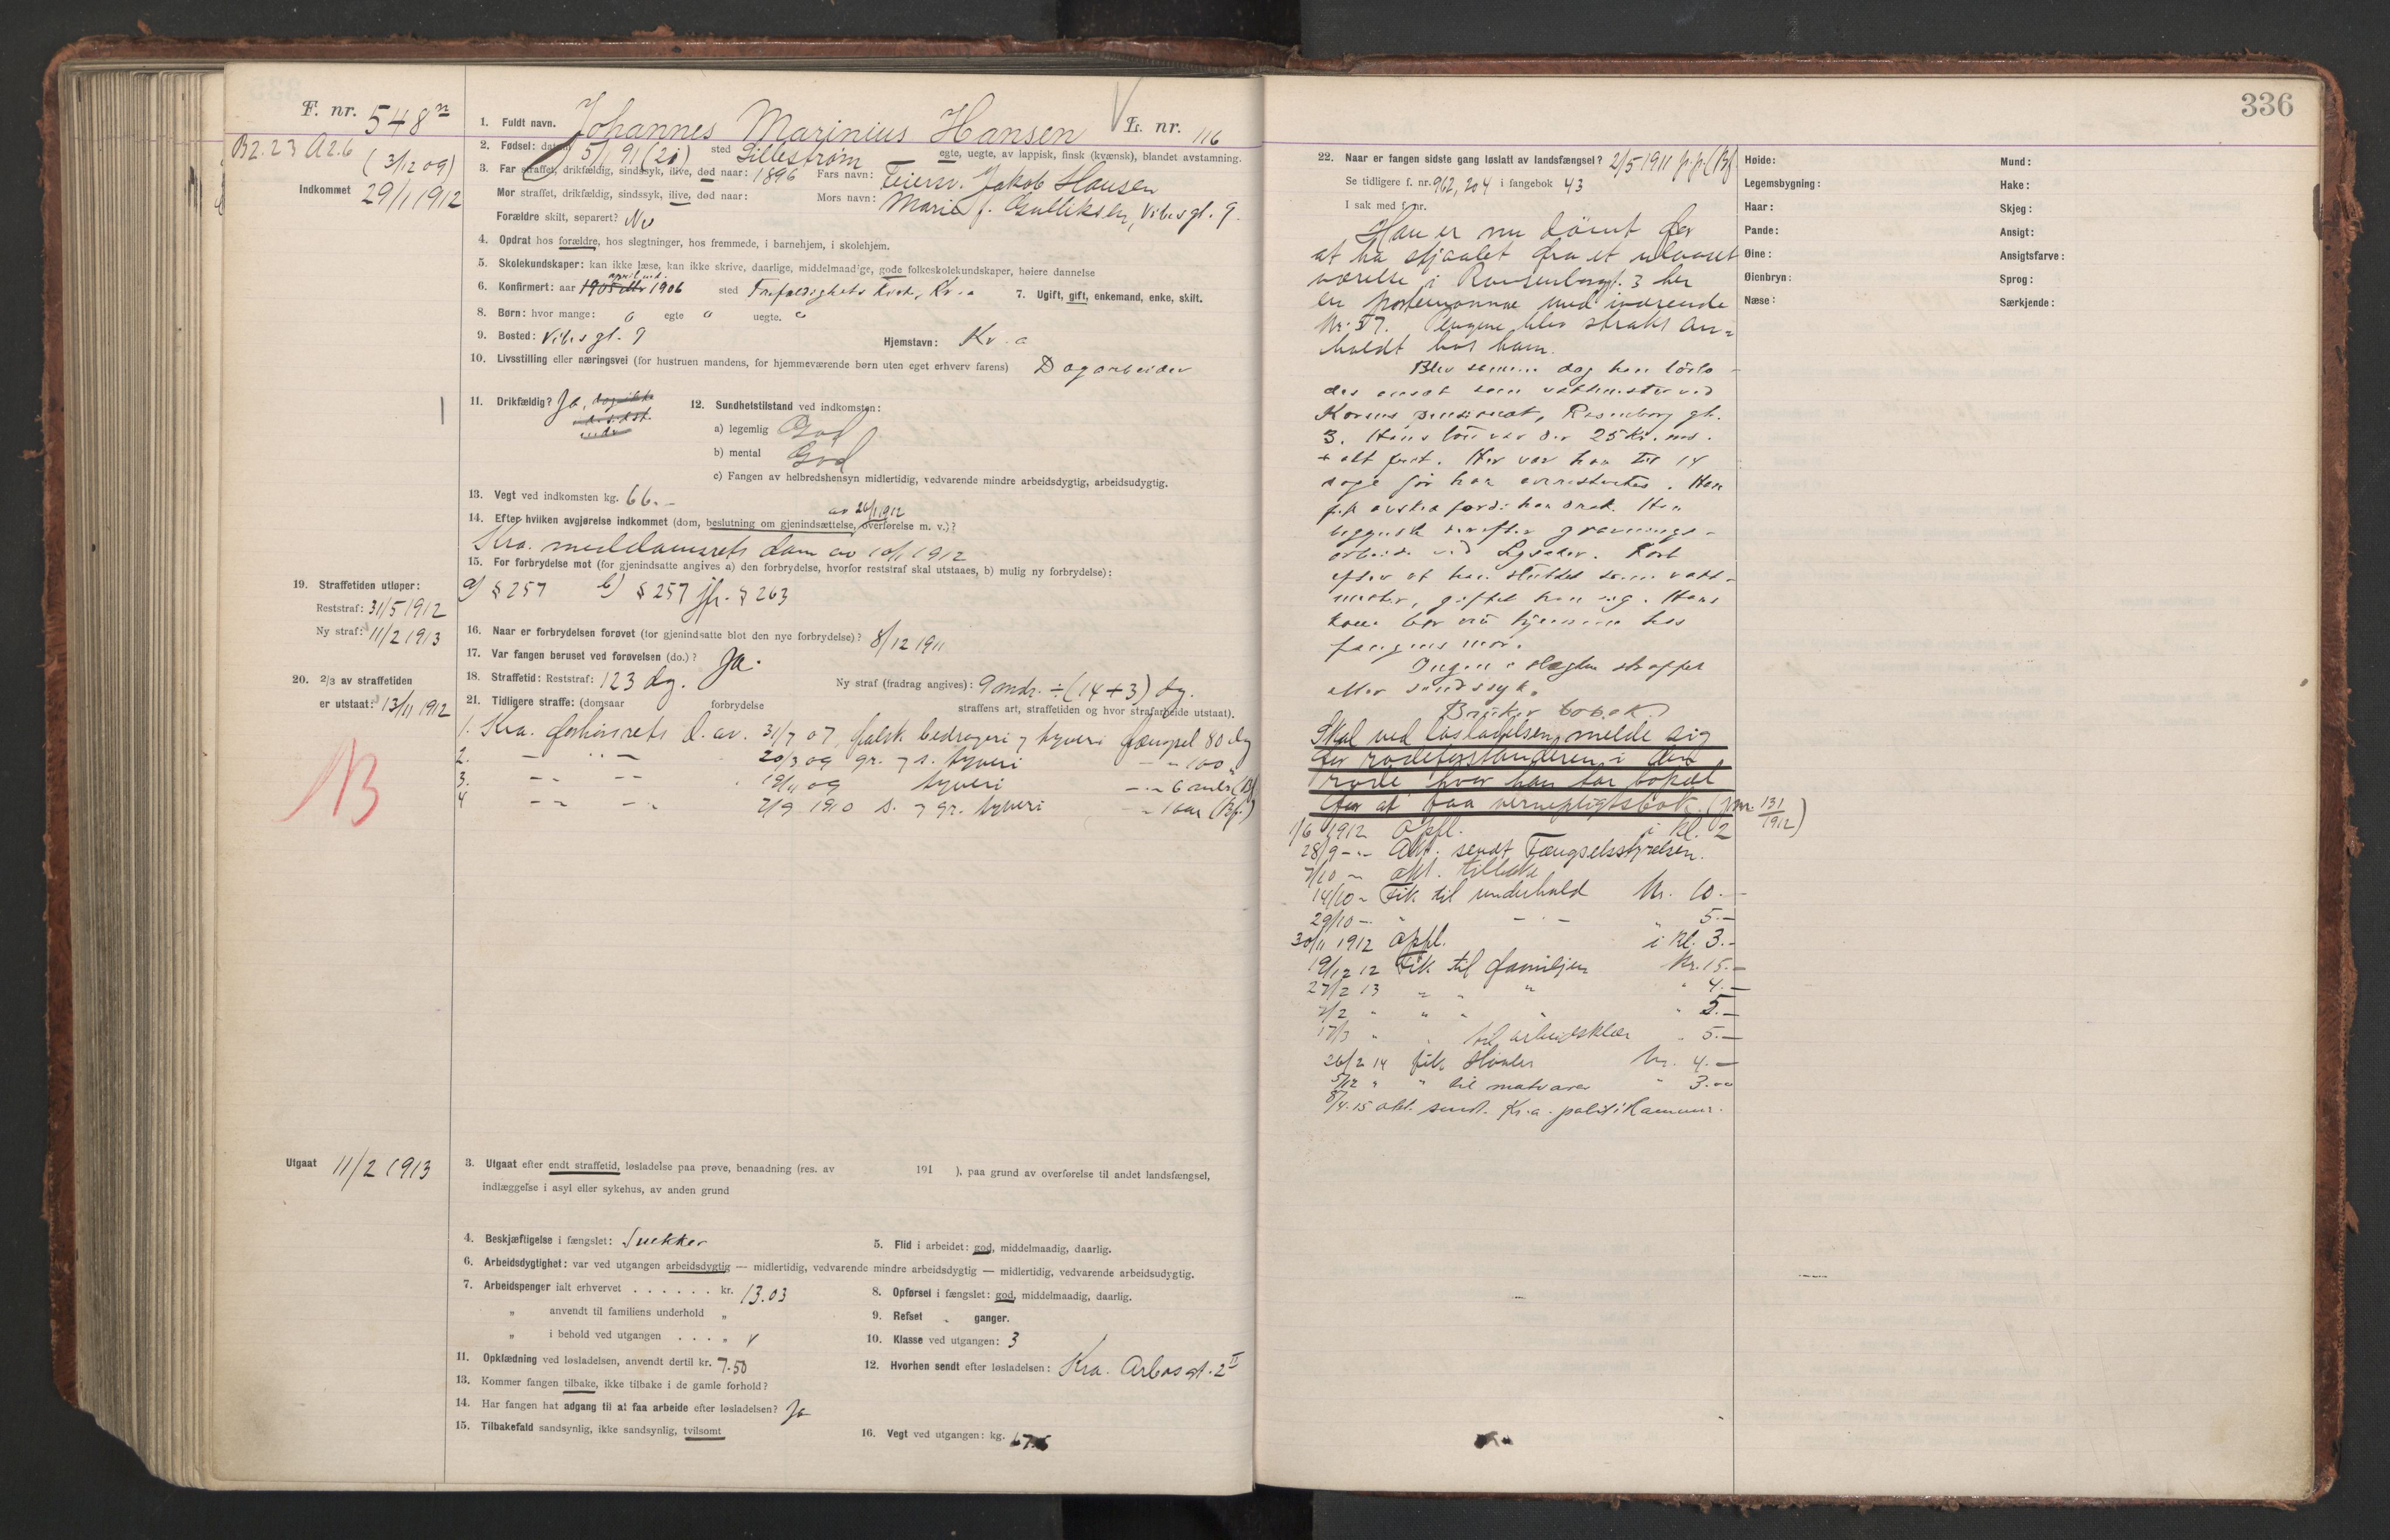 336
F. nr. 548
B2.23 A2.6
(3/12 09)
Indkommet 29/1 1912
1. Fuldt navn. Johannes Marinius Hansen L. nr. 116
2. Fødsel: datum 5/1 91 (20) sted Lillestrøm egte, uegte, av lappisk, finsk (kvænsk), blandet avstamning.
3. Far straffet, drikfældig, sindssyk, ilive, død naar: 1896 Fars navn: Feiersv. Jakob Hansen
Mor straffet, drikfældig, sindssyk, ilive, død naar: Mors navn: Marie f. Gulliksen, Vibesgt. 9.
Forældre skilt, separert? Nei
4. Opdrat hos forældre, hos slegtninger, hos fremmede, i barnehjem, i skolehjem.
5. Skolekundskaper: kan ikke læse, kan ikke skrive, daarlige, middelmaadige, gode folkeskolekundskaper, høiere dannelse
6. Konfirmert: aar 1905 1906 sted Trefoldighets kirke, Kr.a 7. Ugift, gift, enkemand, enke, skilt.
8. Børn: hvor mange: 0 egte 0 uegte. 0
9. Bosted: Vibesgt. 9 Hjemstavn: Kr.a
10. Livsstilling eller næringsvei (for hustruen mandens, for hjemmeværende børn uten eget erhverv farens) Dagarbeider
11. Drikfældig? Ja, 12. Sundhetstilstand ved indkomsten:
a) legemlig God
b) mental God
c) Fangen av helbredshensyn midlertidig, vedvarende mindre arbeidsdygtig, arbeidsudygtig.
13. Vegt ved indkomsten kg. 66.-
av 26/1 1912
14. Efter hvilken avgjørelse indkommet (dom, beslutning om gjenindsættelse, overførelse m. v.)?
Kra. meddomsrets dom av 10/1 1912
15. For forbrydelse mot (for gjenindsatte angives a) den forbrydelse, hvorfor reststraf skal utstaaes, b) mulig ny forbrydelse):
a) § 257 b) § 257 jfr. § 263
19. Straffetiden utløper:
Reststraf: 31/5 1912
Ny straf: 11/2 1913
16. Naar er forbrydelsen forøvet (for gjenindsatte blot den nye forbrydelse)? 8/12 1911
17. Var fangen beruset ved forøvelsen (do.)? Ja.
18. Straffetid: Reststraf: 123 dg. Ny straf (fradrag angives): 9 mdr. ÷ (14+3) dg.
20. 2/3 av straffetiden
er utstaat: 13/11 1912
21. Tidligere straffe: (domsaar forbrydelse straffens art, straffetiden og hvor strafarbeide utstaat).
1. Kra. forhørsrets d. av. 31/7 07 falsk bedrageri 7 tyveri fængsel 80 dg
2. - " - 20/3 09 gr. 7 s. tyveri - " 100 "
3. - " - " 19/11 09 tyveri - " 6 mdr (Bf)
4 - " - " 7/9 1910 s. 7 gr. tyveri " 1 aar (Bf.)
NB
Utgaat 11/2 1913
3. Utgaat efter endt straffetid, løsladelse paa prøve, benaadning (res. av 191 ), paa grund av overførelse til andet landsfængsel,
indlæggelse i asyl eller sykehus, av anden grund
4. Beskjæftigelse i fængslet: Snekker 5. Flid i arbeidet: god, middelmaadig, daarlig.
6. Arbeidsdygtighet: var ved utgangen arbeidsdygtig — midlertidig, vedvarende mindre arbeidsdygtig — midlertidig, vedvarende arbeidsudygtig.
7. Arbeidspenger ialt erhvervet . . . . . . kr. 13.03 8. Opførsel i fængslet: god, middelmaadig, daarlig.
" anvendt til familiens underhold " 9. Refset - ganger.
" i behold ved utgangen . . . " 10. Klasse ved utgangen: 3
11. Opklædning ved løsladelsen, anvendt dertil kr. 7.50 12. Hvorhen sendt efter løsladelsen: Kra. Arbosgt. 2 II
13. Kommer fangen tilbake, ikke tilbake i de gamle forhold?
14. Har fangen hat adgang til at faa arbeide efter løsladelsen? Ja
15. Tilbakefald sandsynlig, ikke sandsynlig, tvilsomt 16. Vegt ved utgangen: kg.
22. Naar er fangen sidste gang løslatt av landsfængsel? 2/5 1911 p.p. (Bf)
Se tidligere f. nr. 962, 204 i fangebok 43
I sak med f. nr.
Han er nu dømt for
at ha stjaalet fra et ulaaset
værelse i Rosenborggt. 3 her
en portemonnæ med iværende
kr. 57. Pengene blev straks an-
holdt hos ham.
Blev samme dag han løslo-
des ansat som vaktmester ved
Korens pensionat, Rosenborg gt.
3. Hans løn var der 25 kr. md.
+ alt frit. Her var han til 14
dage før han arrestertes. Han
fik avsked fordi han drak. Han
begyndte derefter gravnings-
arbeide ved Lysaker. Kort
efter at han sluttet som vakt-
mester, giftet han sig. Hans
kone bor nu hjemme hos
fangens mor.
Ingen i slegten straffet
eller sindssyk.
Bruker tobak.
Skal ved løsladelsen melde sig
for rodeforstanderen i den
rode hvor han tar bopæl
for at faa vernepligtsbok. (jnr. 131/1912)
1/6 1912 Opfl. i kl. 2
28/9 - " - Akt. sendt Fængselsstyrelsen.
7/10 " akt. tilbake
14/10 " Fik til underhold Kr. 10.-
29/10 - " - " - " 5.-
30/11 1912 opfl. i kl. 3.-
19/12 12 Fik til familjen kr. 15.-
27/2 13 " " " " 4.-
7/2 " " " " " 5.-
17/3 " " til arbeidsklær " 5.-
26/2 14 fik Kr. 4.-
5/12 " " til matvarer " 3.00
8/4.15 akt. sendt. Kr.a. politikammer.
Høide:
Legemsbygning:
Haar:
Pande:
Øine:
Øienbryn:
Næse:
Mund:
Hake:
Skjeg:
Ansigt:
Ansigtsfarve:
Sprog:
Særkjende: